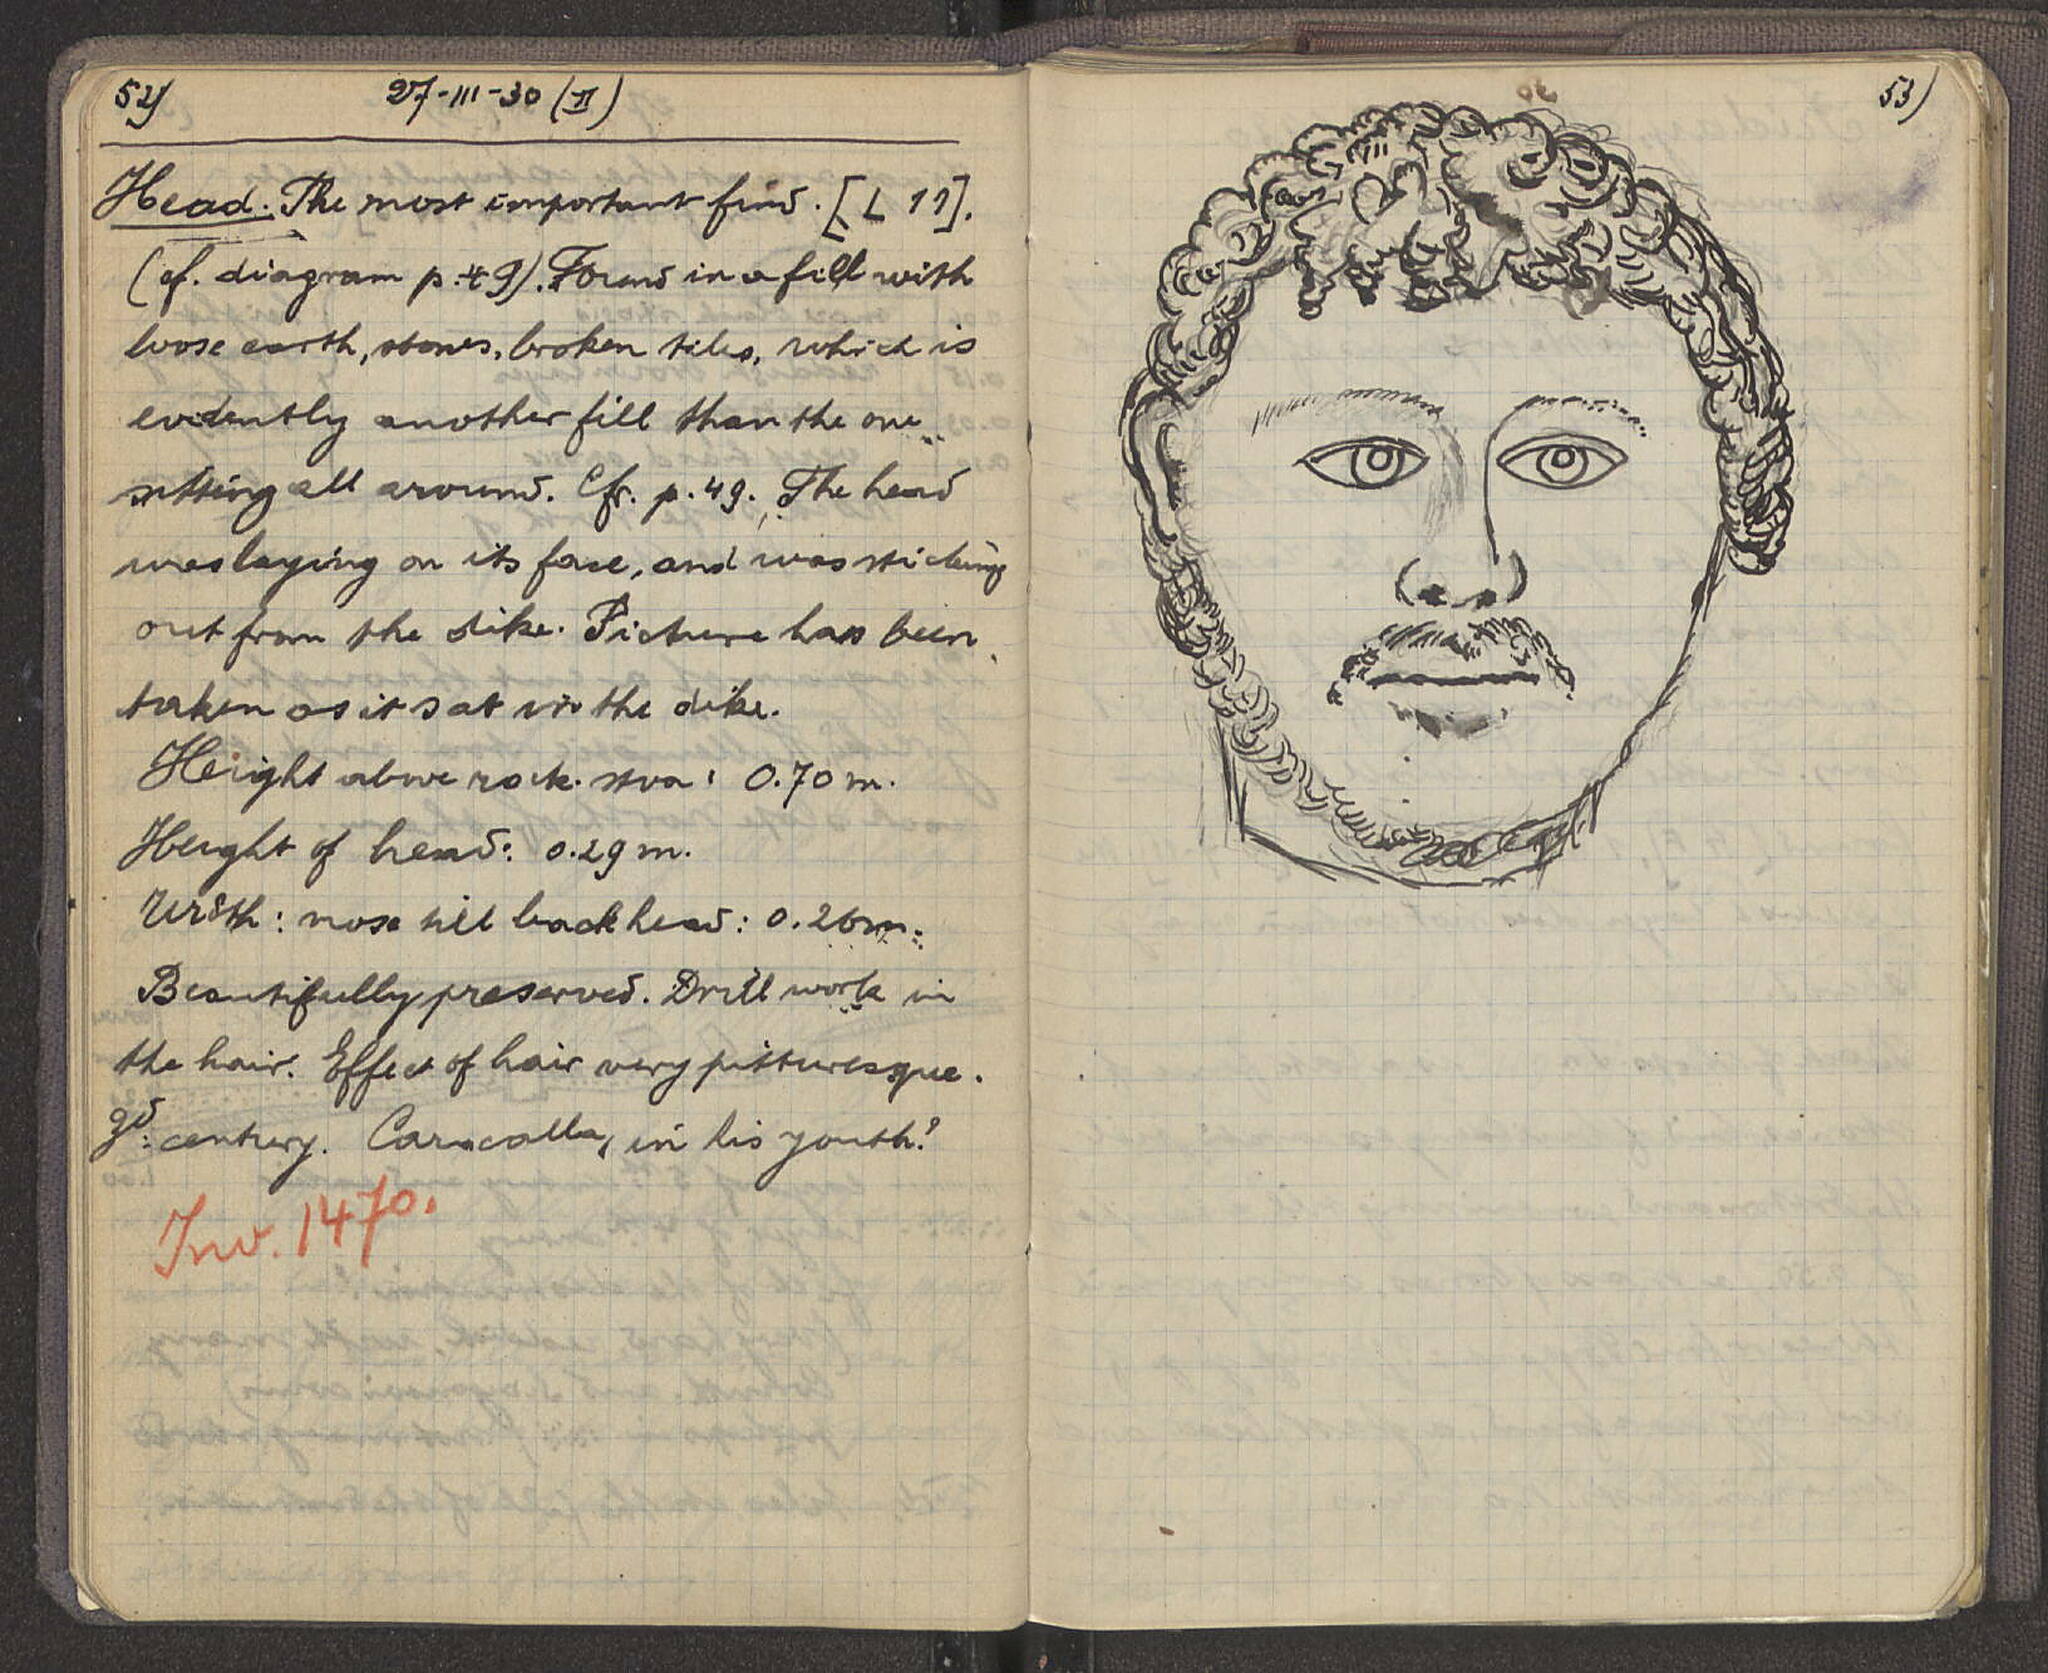 52)
27-III-30 (II)
Head. The most important find. [L 11].
(cf. diagram p. 49). Found in a fill with
loose earth, stones, broken tiles, which is
evidently another fill than the one
sitting all around. Cfr. p. 49. The head
was laying on its face, and was sticking
out from the dike. Picture has been
taken as it sat in the dike.
Height above rock. 0.70 m.
Height of head: 0.29 m.
Width: nose till back head: 0.26 m.
Beautifully preserved. Drill work in
the hair. Effect of hair very pitturesque.
century. Caracalla, in his youth?
Inv. 1470.
53)